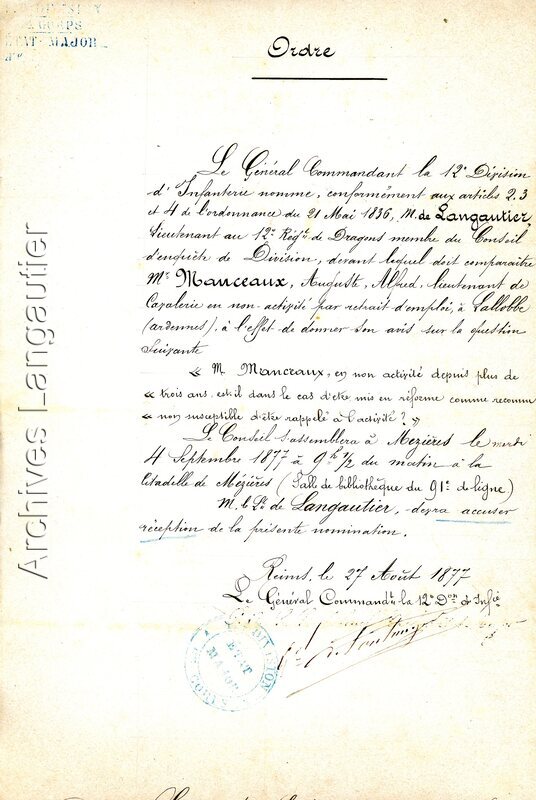 ETAT-MAJOR
Ordre
Le Général Commandant la 12e Division
d'Infanterie nomme, conformément aux articles 2.3
et 4 de l'ordonnance du 21 Mai 1836, M. de Langautier,
Lieutenant au 12e Régt de Dragons membre du Conseil
d'enquête de Division, devant lequel doit comparaître
Mr Manceaux, Auguste, Alfred, lieutenant de
Cavalerie en non-activité par retrait d'emploi, à Lalobbe
(ardennes), à l'effet de donner son avis sur la question
Suivante
« M. Manceaux, en non activité depuis plus de
« trois ans, est-il dans le cas d'être mis en réforme comme reconnu
« non susceptible d'être rappelé à l'activité ? »
Le Conseil s'assemblera à Mézières le mardi
4 Septembre 1877 à 9h 1/2 du matin à la
Citadelle de Mézières (Salle de bibliothèque du 91e de ligne)
M. le Lt de Langautier, devra accuser
réception de la présente nomination.
Reims, le 27 Août 1877
Le Général Commandt la 12e Don d'Infie
ETAT
MAJOR
Archives Langautier